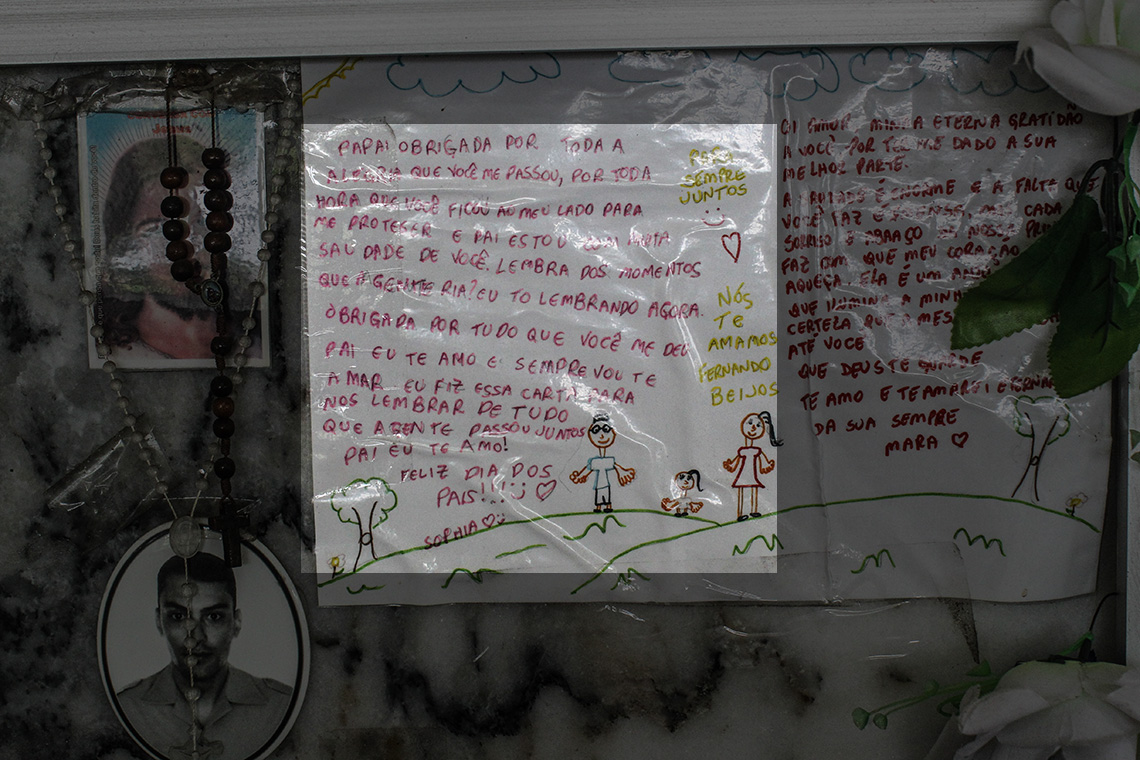 PAPAI OBRIGADA POR TODA A
ALEGRIA QUE VOCÊ ME PASSOU, POR TODA
HORA QUE VOCÊ FICOU AO MEU LADO PARA
ME PROTEGER E PAI ESTOU COM MUITA
SAUDADE DE VOCÊ. LEMBRA DOS MOMENTOS
QUE A GENTE RIA? EU TO LEMBRANDO AGORA.
OBRIGADA POR TUDO QUE VOCÊ ME DEU
PAI EU TE AMO E SEMPRE VOU TE
AMAR EU FIZ ESSA CARTA PARA
NOS LEMBRAR DE TUDO
QUE A GENTE PASSOU JUNTOS
PAI EU TE AMO!
FELIZ DIA DOS
PAIS!!!
SOPHIA
PARA
SEMPRE
JUNTOS
NÓS
TE
AMAMOS
FERNANDO
BEIJOS
OI AMOR MINHA ETERNA GRATIDÃO
A VOCÊ POR TER ME DADO A SUA
MELHOR PARTE.
A SAUDADE É ENORME E A FALTA QUE
VOCÊ FAZ É IMENSA, MAS CADA
SORRISO E ABRAÇO DE NOSSA
FAZ COM QUE MEU CORAÇÃO
AQUEÇA. ELA É UM
QUE ILUMINA A MINHA
CERTEZA QUE
ATÉ VOCÊ
QUE DEUS TE GUARDE
TE AMO E TE AMAREI
DA SUA SEMPRE
MARA